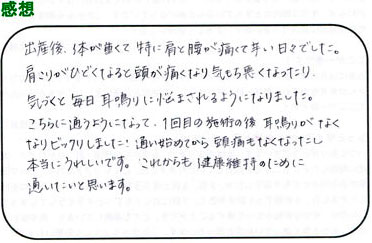 感想
出産後、体が重くて特に肩と腰が痛くて辛い日々でした。
肩こりがひどくなると頭が痛くなり気もち悪くなったり、
気づくと毎日耳鳴りに悩まされるようになりました。
こちらに通うようになって、1回目の施術の後 耳鳴りがなく
なりビックリしました！通い始めてから頭痛もなくなったし
本当にうれしいです。これからも健康維持のために
通いたいと思います。